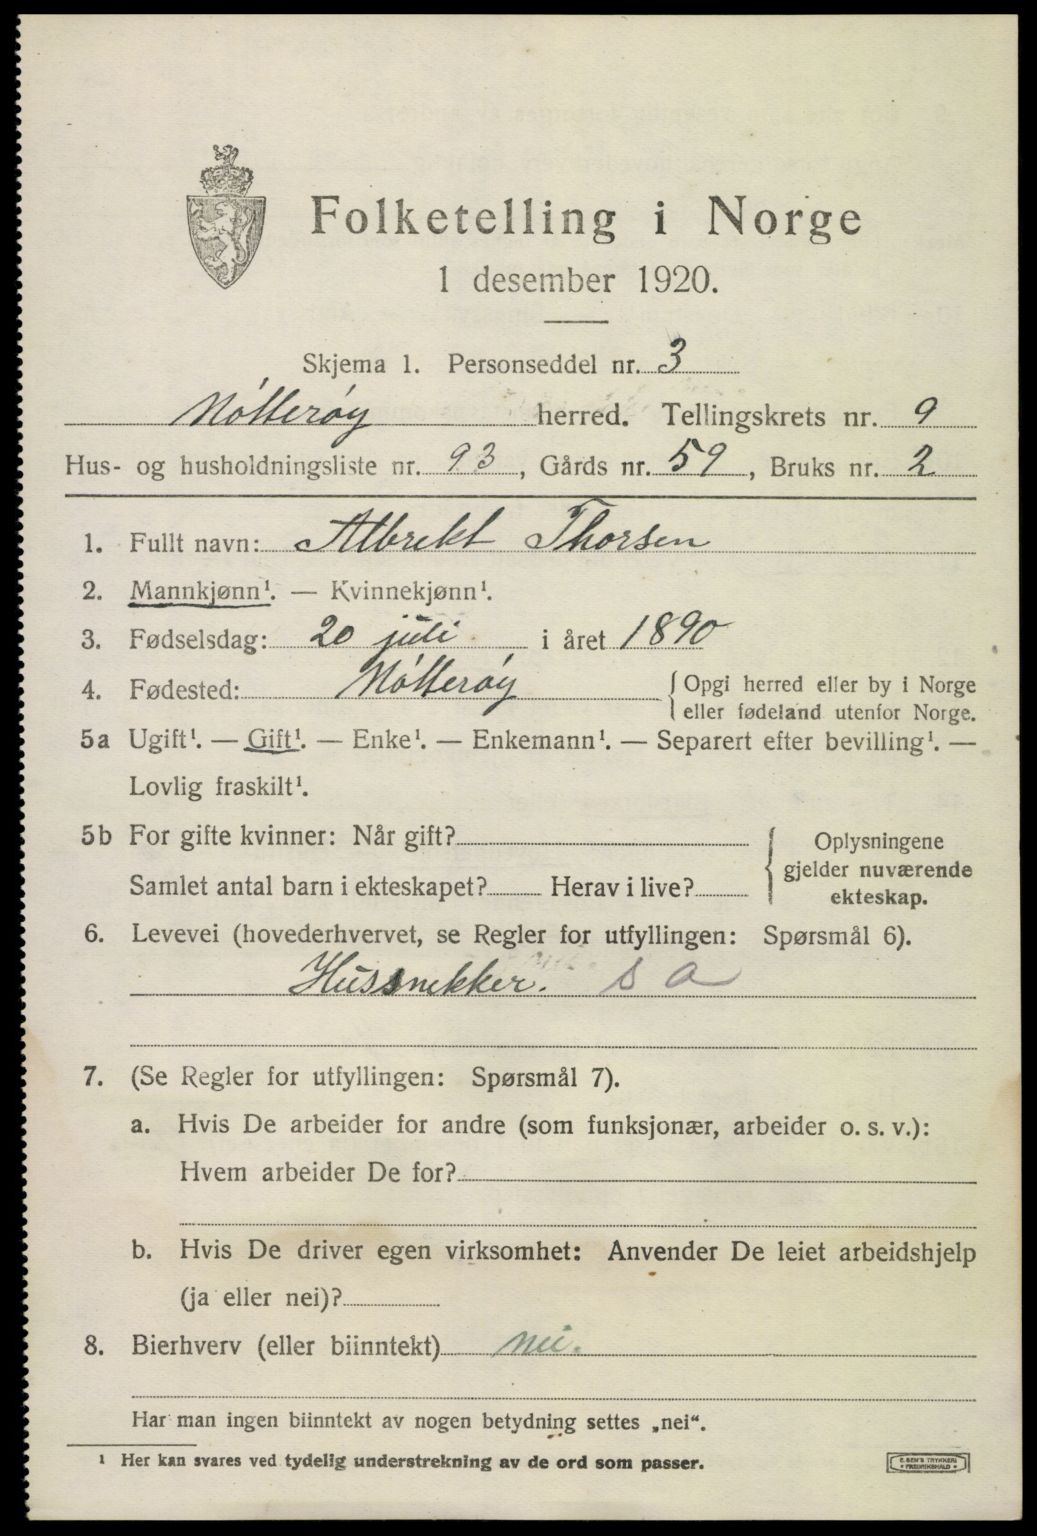 Folketelling i Norge
1 desember 1920.
Skjema 1. Personseddel nr. 3
Nøtterøy herred. Tellingskrets nr. 9
Hus- og husholdningsliste nr. 93, Gårds nr. 59, Bruks nr. 2
1. Fullt navn: Albrekt Thorsen
2. Mannkjønn¹. — Kvinnekjønn¹.
3. Fødselsdag: 20 juli i året 1890
4. Fødested: Nøtterøy { Opgi herred eller by i Norge
eller fødeland utenfor Norge.
5a Ugift¹. — Gift¹. — Enke¹. — Enkemann¹. — Separert efter bevilling¹. —
Lovlig fraskilt¹.
5b For gifte kvinner: Når gift?
Samlet antal barn i ekteskapet? Herav i live?
{ Oplysningene
gjelder nuværende
ekteskap.
6. Levevei (hovederhvervet, se Regler for utfyllingen: Spørsmål 6).
Hussnekker. s a
7. (Se Regler for utfyllingen: Spørsmål 7).
a. Hvis De arbeider for andre (som funksjonær, arbeider o. s. v.):
Hvem arbeider De for?
b. Hvis De driver egen virksomhet: Anvender De leiet arbeidshjelp
(ja eller nei)?
8. Bierhverv (eller biinntekt) nei.
Har man ingen biinntekt av nogen betydning settes „nei“.
¹ Her kan svares ved tydelig understrekning av de ord som passer.
E. SEM'S TRYKKERI
• FREDRIKSHALD •